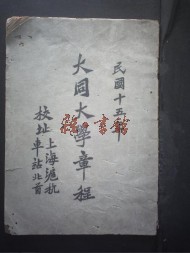 民國十五年
大同大學章程
校址上海滬杭
車站北首